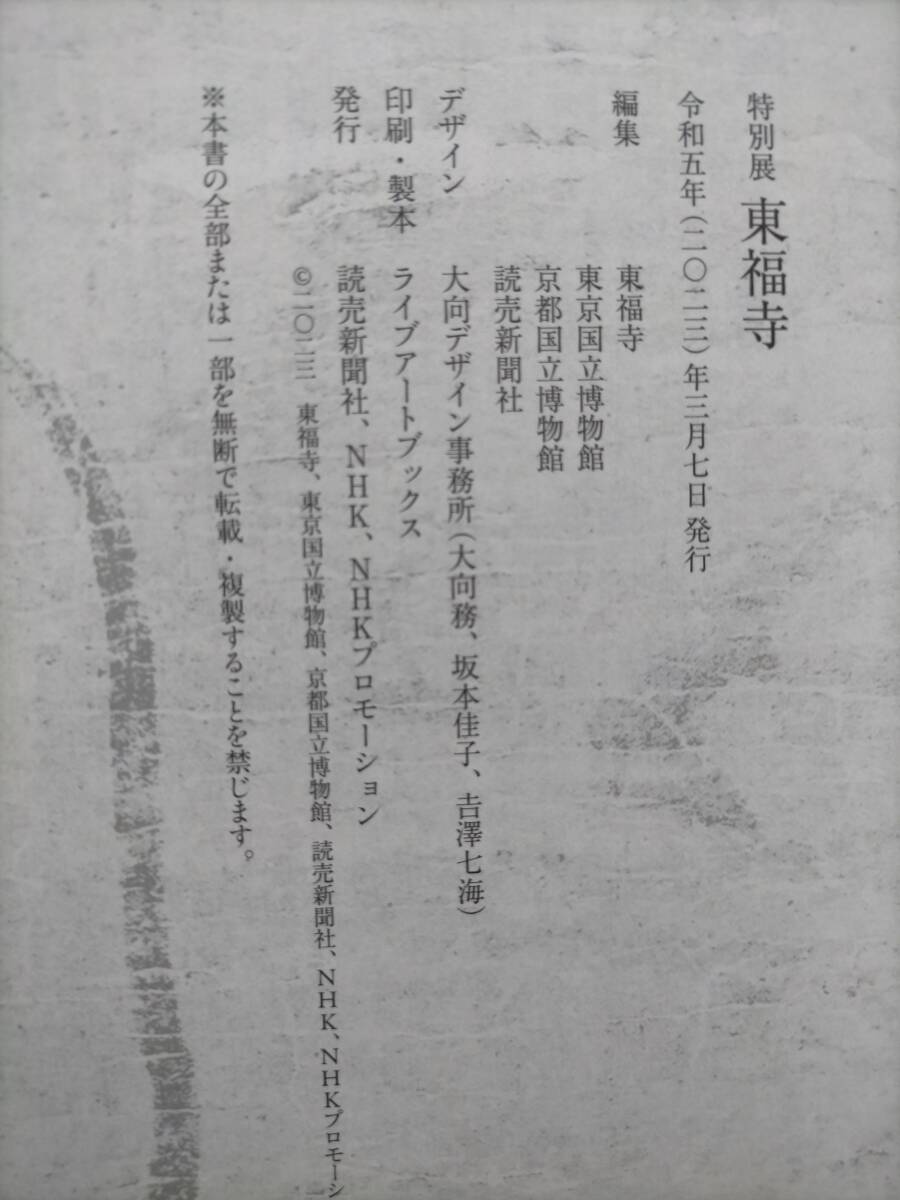 特別展 東福寺
令和五年(二〇二三)年三月七日 発行
編集 東福寺
東京国立博物館
京都国立博物館
読売新聞社
デザイン 大向デザイン事務所(大向務、坂本佳子、𠮷澤七海)
印刷・製本 ライブアートブックス
発行 読売新聞社、NHK、NHKプロモーション
©二〇二三 東福寺、東京国立博物館、京都国立博物館、読売新聞社、NHK、NHKプロモーシ
※本書の全部または一部を無断で転載・複製することを禁じます。